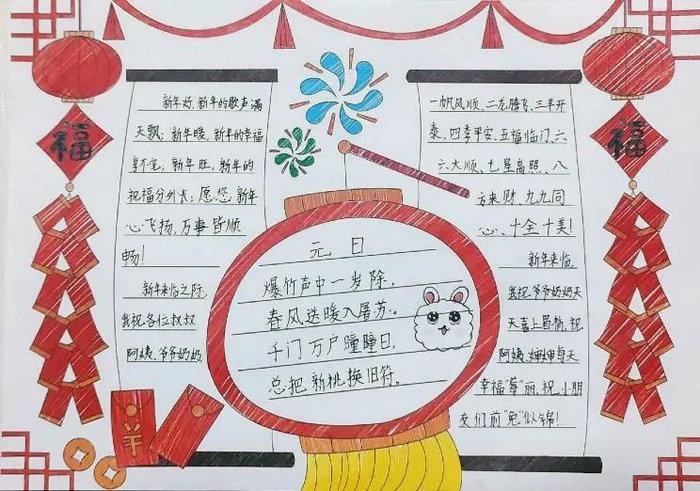 福
福
新年好,新年的歌声满
天飘;新年暖,新年的幸福
享不完,新年旺,新年的
祝福分外长;愿您,新年
心飞扬,万事皆顺
畅!
新年来临之际,
我祝各位叔叔
阿姨、爷爷奶奶
元日
爆竹声中一岁除,
春风送暖入屠苏。
千门万户瞳瞳日,
总把新桃换旧符。
一帆风顺、二龙腾飞、三羊开
泰、四季平安、五福临门、六
六大顺、七星高照、八
方来财、九九同
心、十全十美!
新年来临,
我祝爷爷奶奶天
天喜上眉梢,祝
阿姨、婶婶每天
幸福"莓"丽,祝小朋
友们前"兔"似锦!